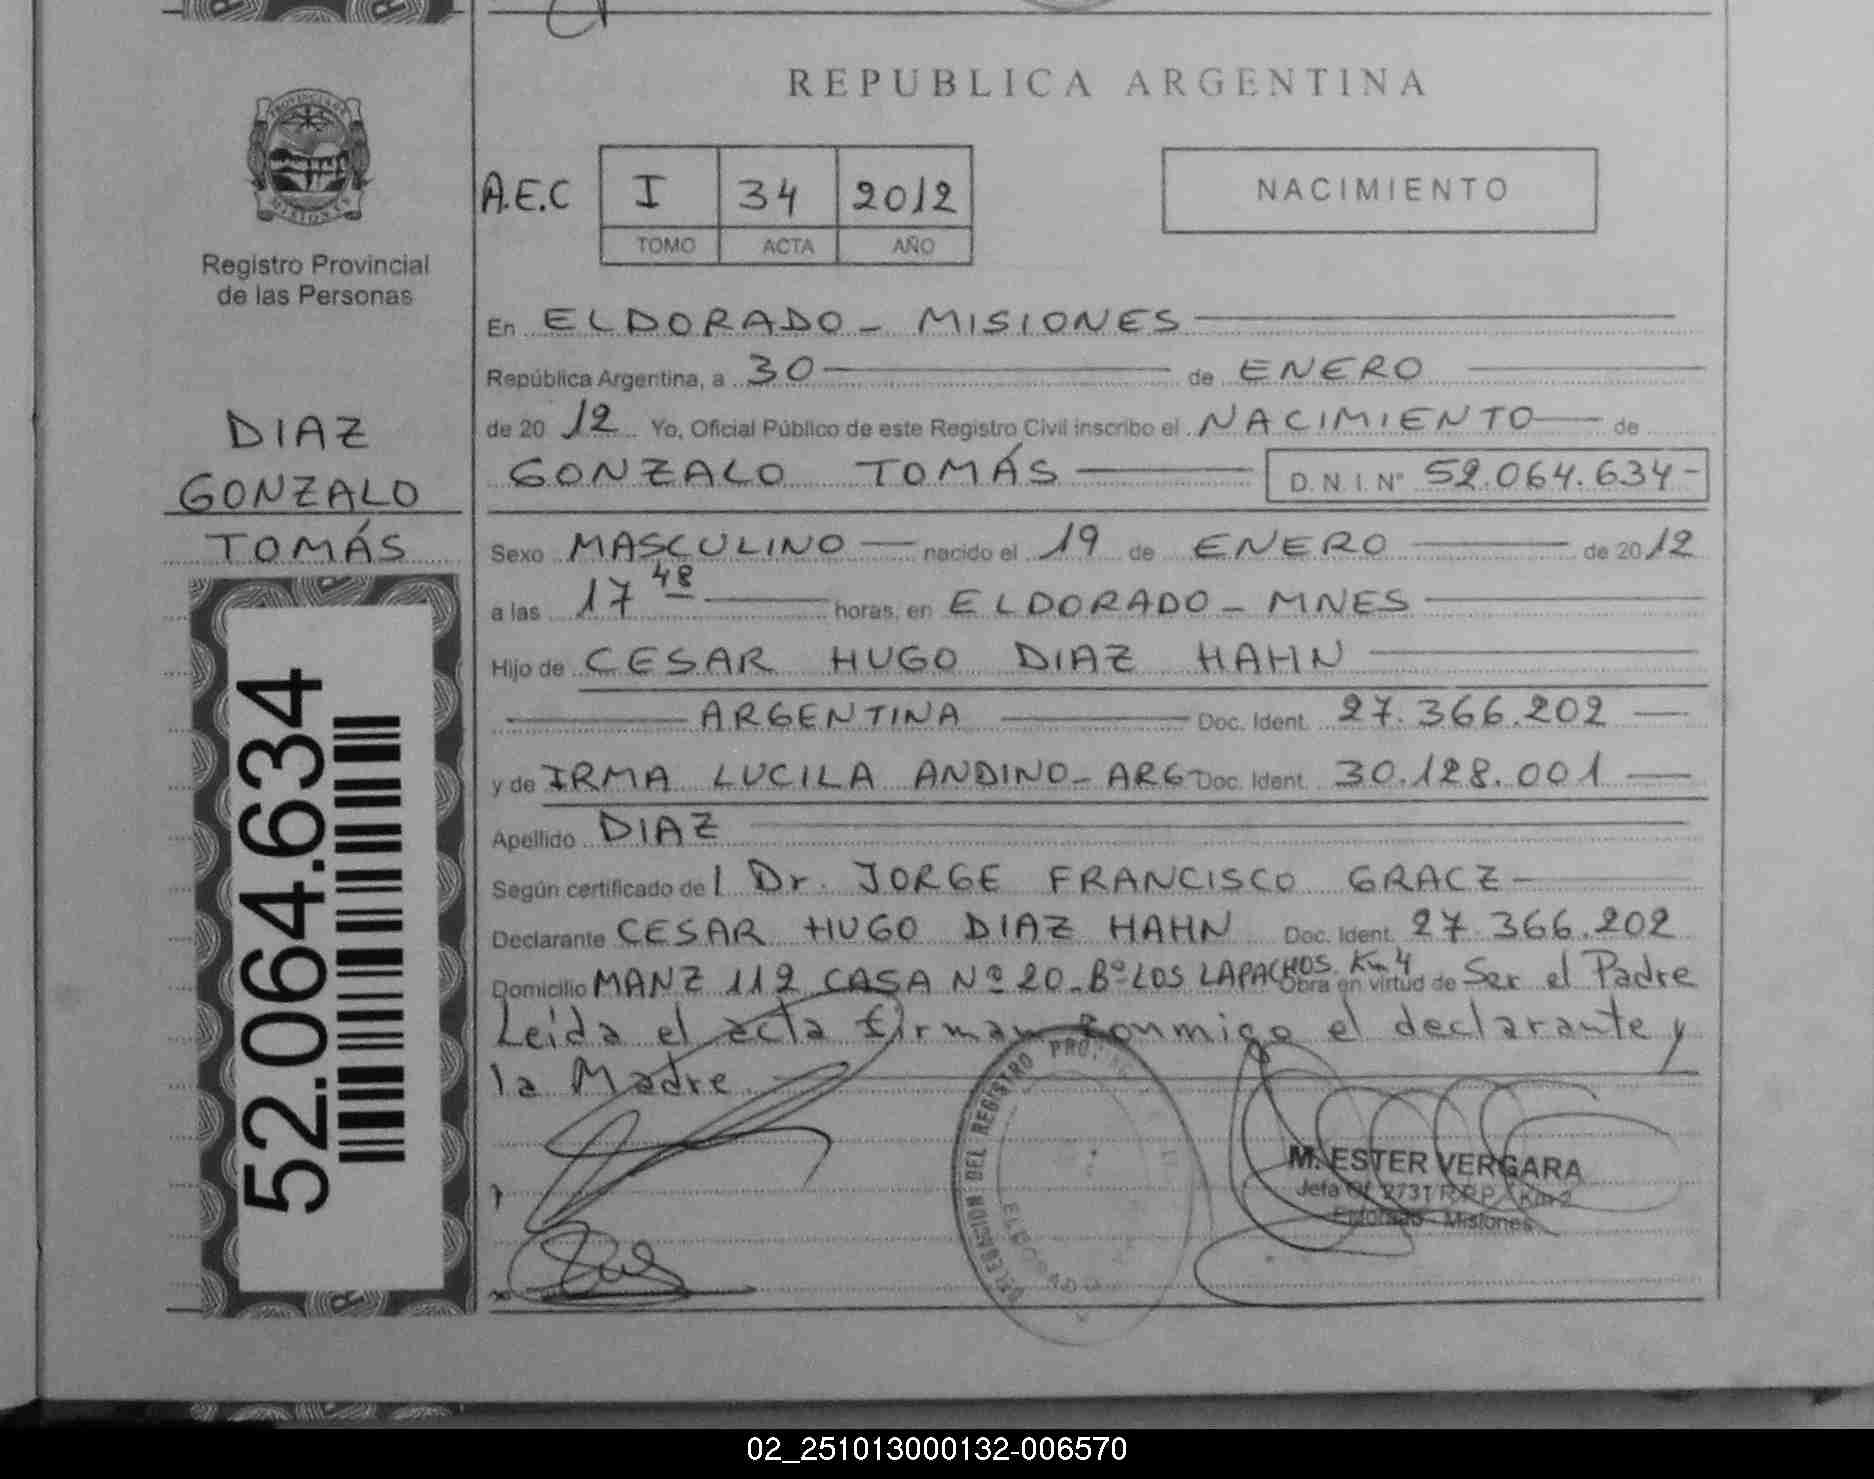 REPUBLICA ARGENTINA
PROVINCIA DE
MISIONES
Registro Provincial
de las Personas
A.E.C I 34 2012
TOMO ACTA AÑO
NACIMIENTO
En ELDORADO - MISIONES
República Argentina, a 30 de ENERO
de 20 12 Yo, Oficial Público de este Registro Civil inscribo el NACIMIENTO de
GONZALO TOMÁS D. N. I. Nº 52.064.634-
DIAZ
GONZALO
TOMÁS
52.064.634
Sexo MASCULINO nacido el 19 de ENERO de 2012
a las 17 48 horas, en ELDORADO - MNES
Hijo de CESAR HUGO DIAZ HAHN
ARGENTINA Doc. Ident. 27.366.202
y de IRMA LUCILA ANDINO - ARG Doc. Ident. 30.128.001
Apellido DIAZ
Según certificado de l Dr. JORGE FRANCISCO GRACZ
Declarante CESAR HUGO DIAZ HAHN Doc. Ident. 27.366.202
Domicilio MANZ 112 CASA Nº 20 - Bº LOS LAPACHOS. Km 4 Obra en virtud de Ser el Padre
Leida el acta firman conmigo el declarante y
la Madre.
DELEGACION DEL REGISTRO
ELDORADO
M. ESTER VERGARA
Jefa Of. 2731 R.P.P. Km 2
Eldorado - Misiones
02_251013000132-006570